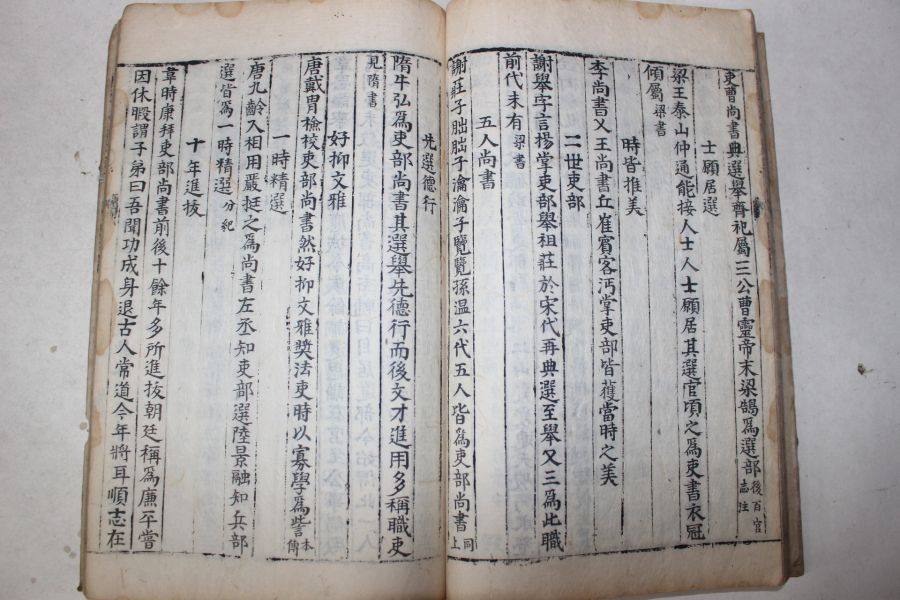 吏曹尚書典選舉齊祀屬三公曹靈帝末梁鵠爲選部後百官志注
士願居選
梁王泰山仲通能接人士人士願居其選官頃之爲吏書衣冠
傾屬梁書
時皆推美
李尚書乂王尚書丘崔賓客沔掌吏部皆蒦當時之美
二世吏部
謝舉字言揚掌吏部舉祖莊於宋代再典選至舉又三爲此職
前代未有梁書
五人尚書
謝莊子朏朏子瀹瀹子覽覽孫温六代五人皆爲吏部尚書同上
先選德行
隋牛弘爲吏部尚書其選舉先德行而後文才進用多稱職吏
見隋書
好抑文雅
唐戴胄檢校吏部尚書然好抑文雅獎法吏時以寡學爲訾本傳
一時精選
唐九齡入相用嚴挺之爲尚書左丞知吏部選陸景融知兵部
選皆爲一時精選分紀
十年進拔
韋時康拜吏部尚書前後十餘年多所進拔朝廷稱爲廉平嘗
因休暇謂子弟曰吾聞功成身退古人常道今年將耳順志在